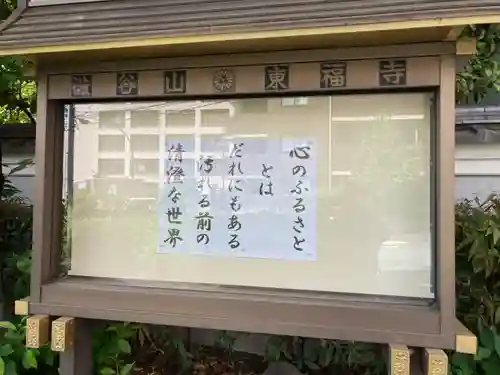 澁谷山 東福寺
心のふるさと
とは
だれにもある
汚れる前の
清澄な世界